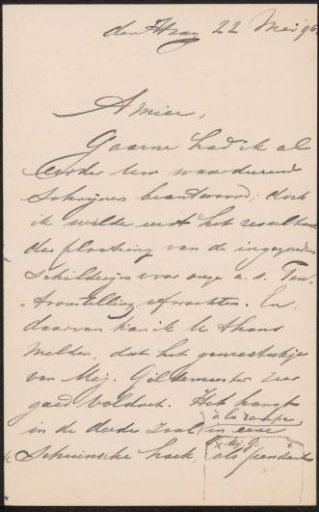 den Haag 22 Mei 90
Amice,
Gaarne had ik al
eerder Uw waardeerend
schrijven beantwoord; doch
ik wilde eerst het resultaat
der plaatsing van de ingezonden
schilderijen voor onze a. s. Ten-
toonstelling afwachten. En
daarvan kan ik U thans
melden, dat het genrestukje
van Mej. Gildemeester zeer
goed voldoet. Het hangt
à la rampe
in de derde Zaal in eene
Schuinsche hoek als pendant